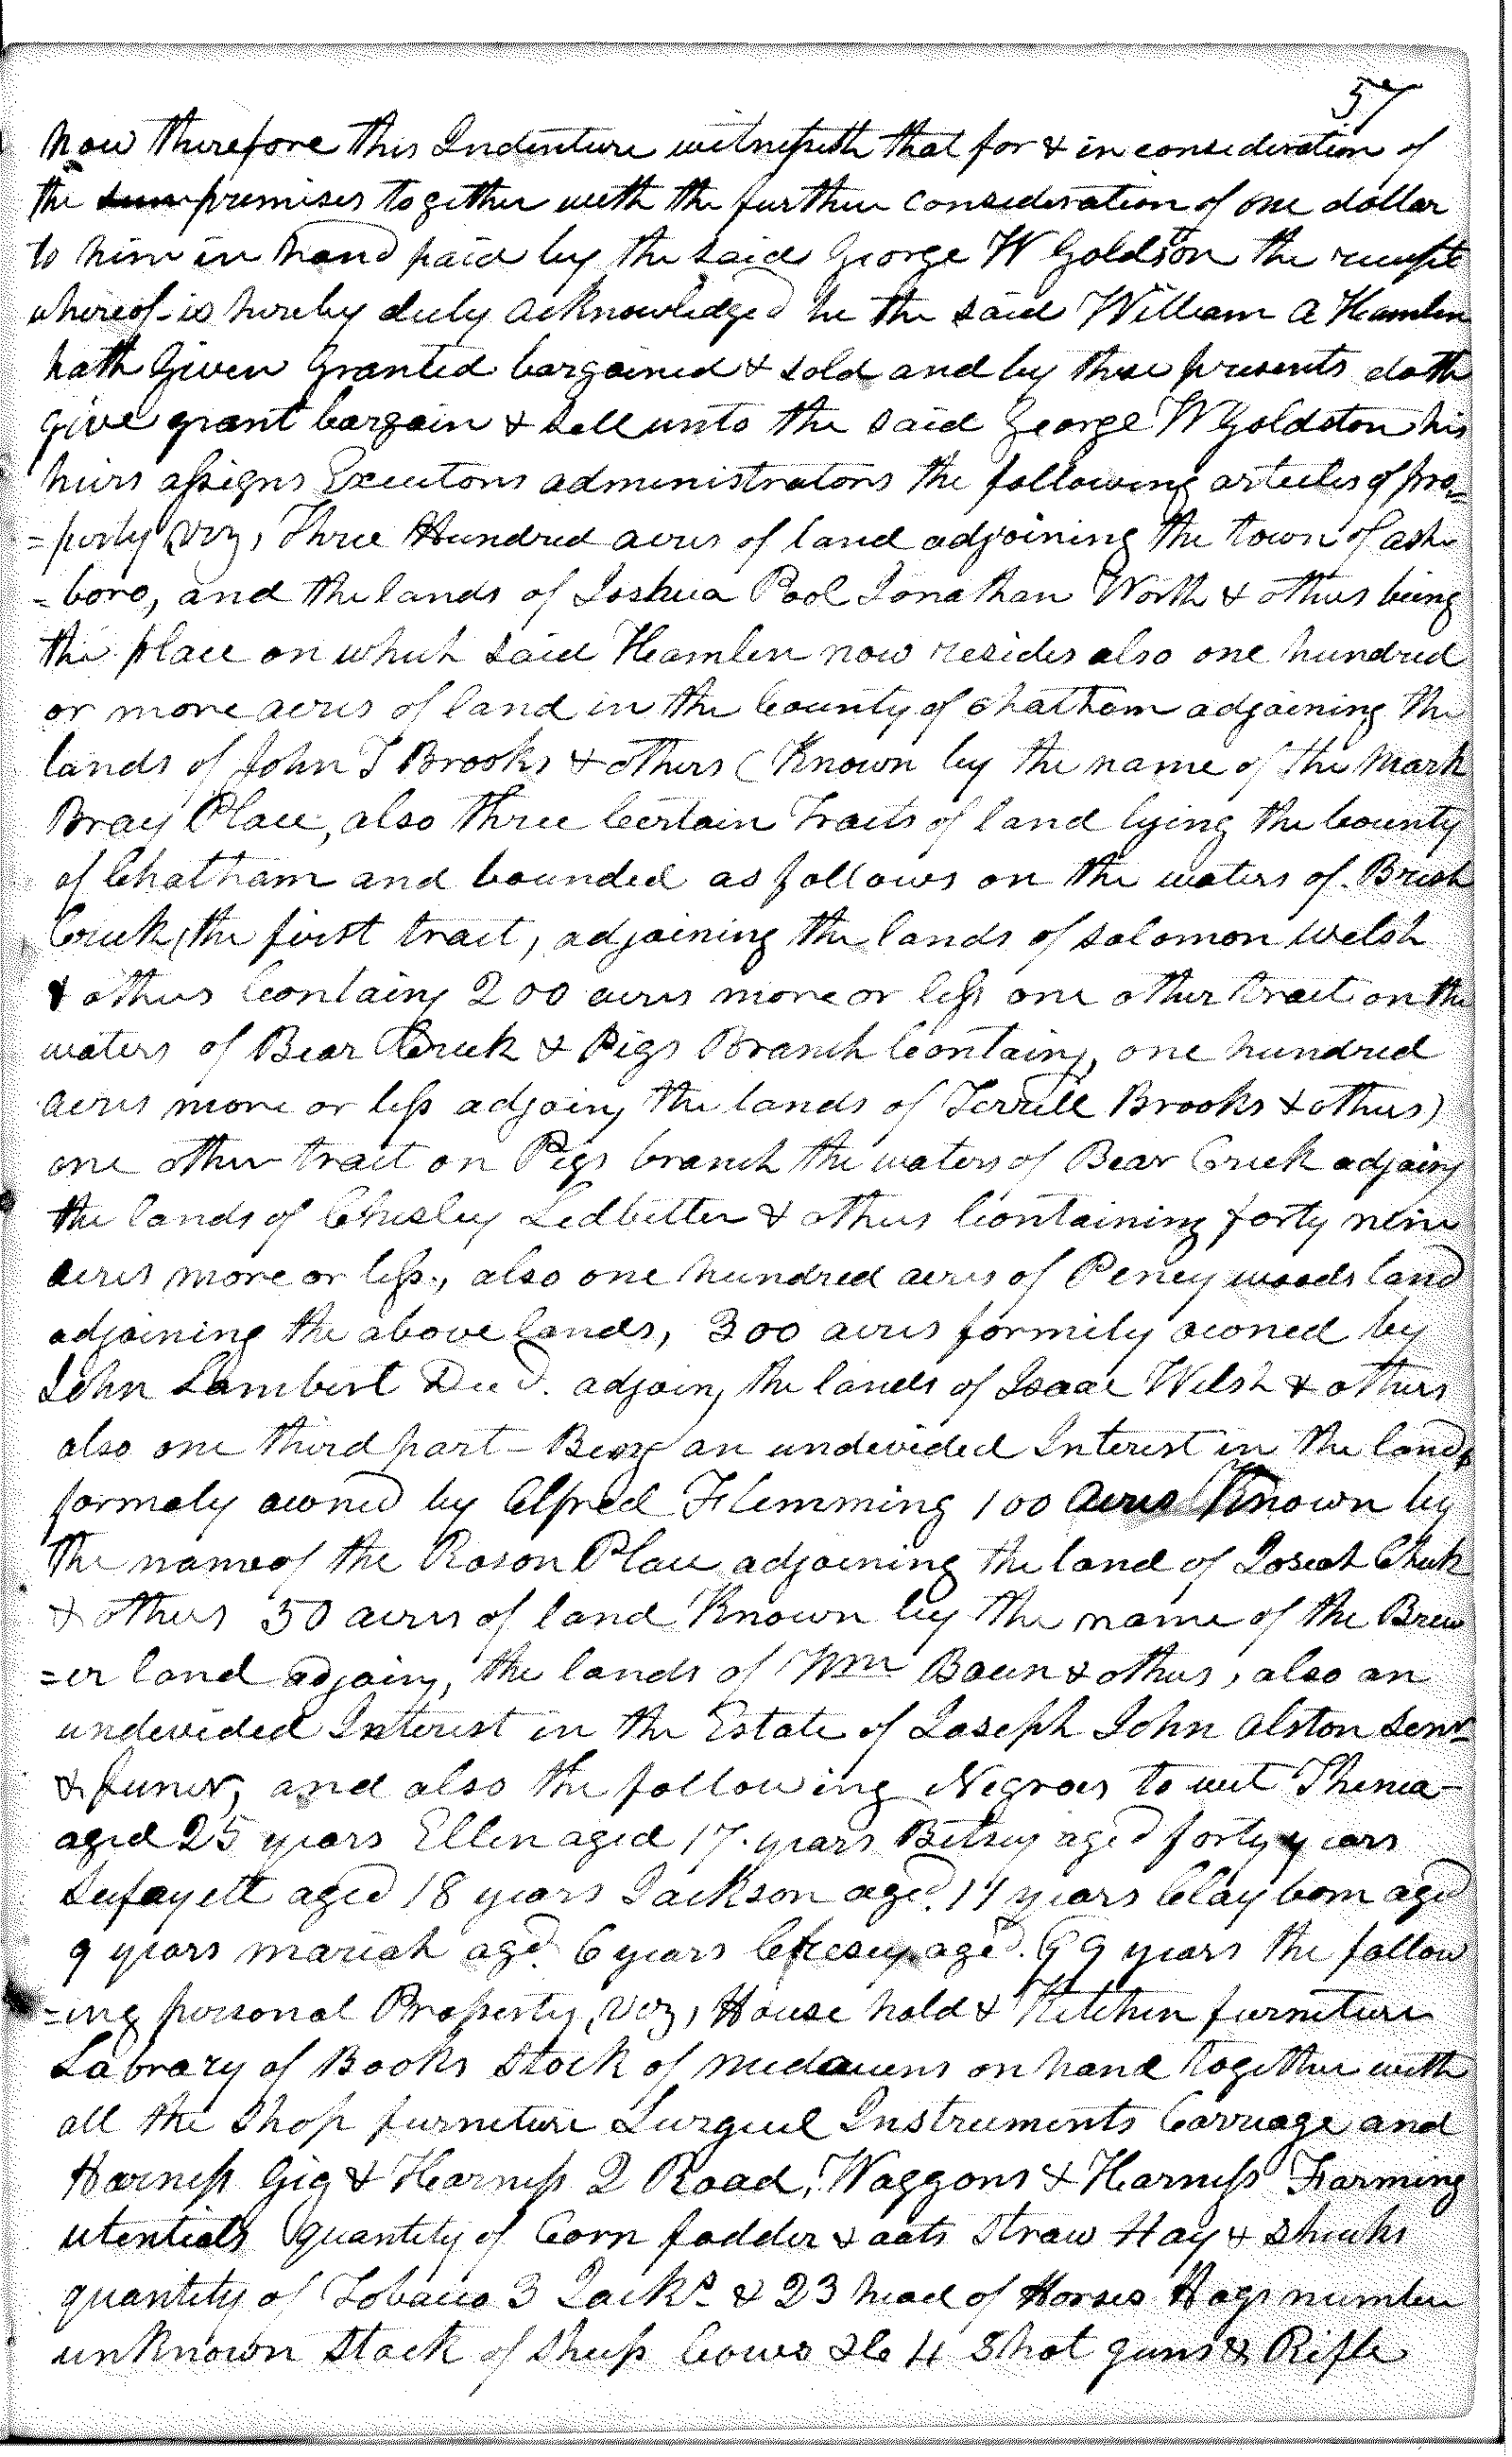 57
Now therefore this Indenture witnesseth that for & in consideration of
the premises together with the further consideration of one dollar
to him in hand paid by the said George W Goldston the receipt
whereof is hereby duly acknowledged he the said William A Hamlen
hath Given Granted bargained & sold and by these presents doth
give grant bargain & sell unto the said George W Goldston his
heirs assigns Executors administrators the following articles of pro=
=perty, viz, Three Hundred acres of land adjoining the town of ashe
=boro, and the lands of Joshua Pool Jonathan Worth & others being
the place on which said Hamlen now resides also one hundred
or more acres of land in the County of Chatham adjoining the
lands of John T Brooks & others (Known by the name of the Mark
Bray Place, also three Certain Tracts of land lying the County
of Chatham and bounded as follows on the waters of Brush
Creek, the first tract, adjoining the lands of Solomon Welsh
& others Containg 200 acres more or less one other tract on the
waters of Bear Creek & Pigs Branch Containg, one hundred
acres more or less adjoing the lands of Terrill Brooks & others)
one other tract on Pigs branch the waters of Bear Creek adjoing
the lands of Chesley Ledbetter & others Containing forty nine
acres more or less, also one hundred acres of Peney woods land
adjoining the above lands, 300 acres formily owned by
John Lambert Decd. adjoing the lands of Isaac Welsh & others
also one third part - Being an undevided Interest in the lands
formaly owned by Alfred Flemming 100 acres Known by
the name of the Roson Place adjoining the land of Josiah Cheek
& others 50 acres of land Known by the name of the Brew
=er land adjoing, the lands of Wm & others, also an
undevided Interest in the Estate of Joseph John Alston Senr
& Junir, and also the following Negroes to wit Thenia
aged 25 years Ellen aged 17 years Betsey aged forty years
Lefayett aged 18 years Jackson aged 14 years Clayborn aged
9 years mariah agd 6 years aged 99 years the follow
=ing personal Property, viz, House hold & Kitchen furniture
Labrary of Books Stock of on hand together with
all the Shop furniture Surgicel Instruments Carriage and
Harness Gig & Harness 2 Road, Waggons & Harness Farming
utentials quantity of Corn fodder & oats Straw Hay & Shucks
quantity of Tobacco 3 Jacks & 23 head of Horses Hogs number
unKnown Stock of Sheep Cows &c 4 Shot guns & Rifle